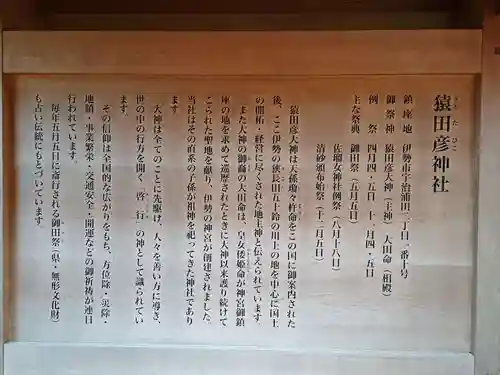 猿田彦神社
さるたひこ
鎮座地　伊勢市宇治浦田二丁目一番十号
御祭神　猿田彦大神（主神）大田命（相殿）
例　祭　四月四・五日　十一月四・五日
主な祭典　御田祭（五月五日）
佐瑠女神社例祭（八月十八日）
清砂頒布始祭（十二月五日）
猿田彦大神は天孫瓊々杵命をこの国に御案内された
後、ここ伊勢の狭長田五十鈴の川上の地を中心に国土
の開拓・経営に尽くされた地主神と伝えられています
また大神の御裔の大田命は、皇女倭姫命が神宮御鎮
座の地を求めて巡歴されたときに大神以来護り続けて
こられた聖地を献り、伊勢の神宮が創建されました。
当社はその直系の子孫が祖神を祀ってきた神社であり
ます
大神は全てのことに先駆け、人々を善い方に導き、
世の中の行方を開く（啓行）の神として讃えられてい
ます。
その信仰は全国的な広がりをもち、方位除・災除・
地鎮・事業繁栄・交通安全・開運などの御祈祷が連日
行われています。
毎年五月五日に斎行される御田祭（県・無形文化財）
も古い伝統にもとづいています